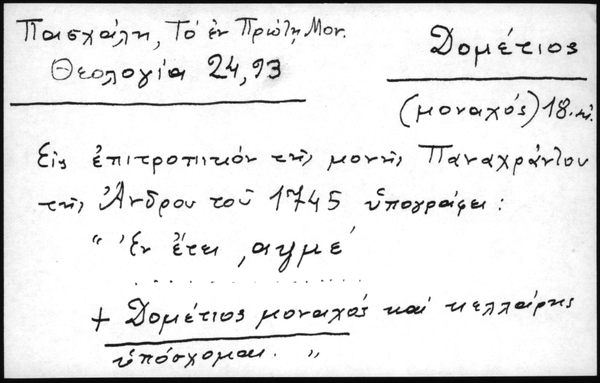 Πασχάλη, Τό ἐν Πρώτη Μον.
Θεολογία 24, 93
Δομέτιος
(μοναχός) 18. αἰ.
Εἰς ἐπιτροπικόν τῆς μονῆς Παναχράντου
τῆς Ἄνδρου τοῦ 1745 ὑπογράφει:
" Ἐν ἔτει ͵αψμε΄
..............
+ Δομέτιος μοναχός καί κελλάρης
ὑπόσχομαι. "